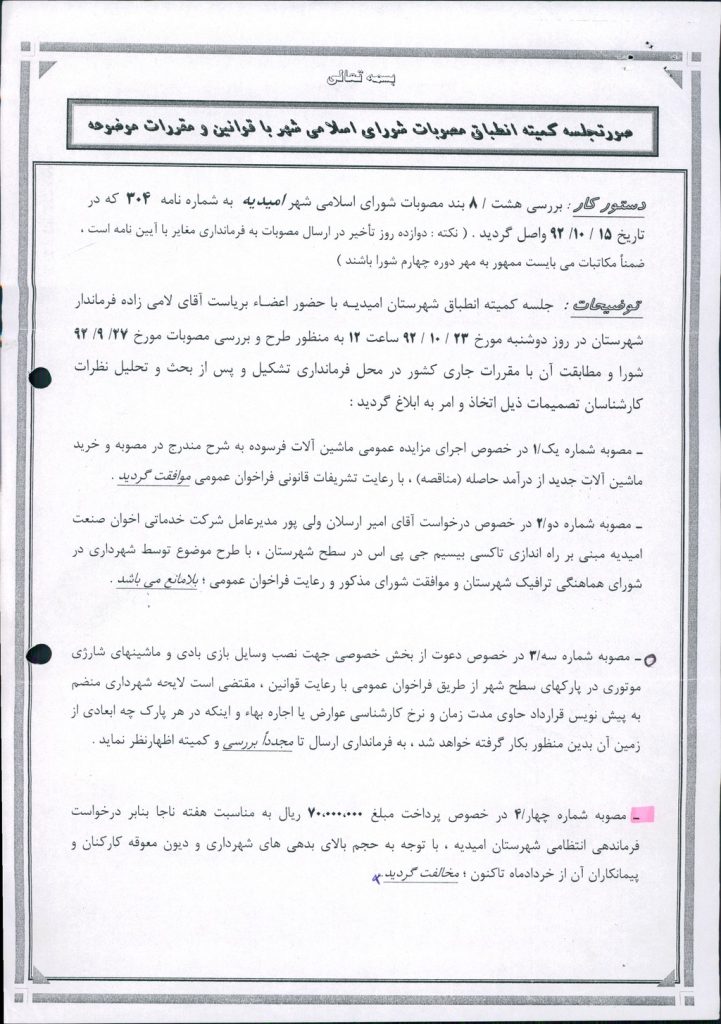 بسمه تعالی
صورتجلسه کمیته انطباق مصوبات شورای اسلامی شهر با قوانین و مقررات موضوعه
دستور کار : بررسی هشت / ۸ بند مصوبات شورای اسلامی شهر امیدیه به شماره نامه ۳۰۴ که در
تاریخ ۱۵ / ۱۰ / ۹۲ واصل گردید . ( نکته : دوازده روز تأخیر در ارسال مصوبات به فرمانداری مغایر با آیین نامه است ،
ضمناً مکاتبات می بایست ممهور به مهر دوره چهارم شورا باشند )
توضیحات : جلسه کمیته انطباق شهرستان امیدیـه با حضور اعضـاء بریاست آقای لامی زاده فرماندار
شهرستان در روز دوشنبه مورخ ۲۳ / ۱۰ / ۹۲ ساعت ۱۲ به منظور طرح و بررسی مصوبات مورخ ۲۷/ ۹/ ۹۲
شورا و مطابقت آن با مقررات جاری کشور در محل فرمانداری تشکیل و پس از بحث و تحلیل نظرات
کارشناسان تصمیمات ذیل اتخاذ و امر به ابلاغ گردید :
ـ مصوبه شماره یک/۱ در خصوص اجرای مزایده عمومی ماشین آلات فرسوده به شرح مندرج در مصوبه و خرید
ماشین آلات جدید از درآمد حاصله (مناقصه) ، با رعایت تشریفات قانونی فراخوان عمومی موافقت گردید .
ـ مصوبه شماره دو/۲ در خصوص درخواست آقای امیر ارسلان ولی پور مدیرعامل شرکت خدماتی اخوان صنعت
امیدیه مبنی بر راه اندازی تاکسی بیسیم جی پی اس در سطح شهرستان ، با طرح موضوع توسط شهرداری در
شورای هماهنگی ترافیک شهرستان و موافقت شورای مذکور و رعایت فراخوان عمومی ؛ بلامانع می باشد .
ـ مصوبه شماره سه/۳ در خصوص دعوت از بخش خصوصی جهت نصب وسایل بازی بادی و ماشینهای شارژی
موتوری در پارکهای سطح شهر از طریق فراخوان عمومی با رعایت قوانین ، مقتضی است لایحه شهرداری منضم
به پیش نویس قرارداد حاوی مدت زمان و نرخ کارشناسی عوارض یا اجاره بهاء و اینکه در هر پارک چه ابعادی از
زمین آن بدین منظور بکار گرفته خواهد شد ، به فرمانداری ارسال تا مجدداً بررسی و کمیته اظهارنظر نماید .
ـ مصوبه شماره چهار/۴ در خصوص پرداخت مبلغ ۷۰،۰۰۰،۰۰۰ ریال به مناسبت هفته ناجا بنابر درخواست
فرماندهی انتظامی شهرستان امیدیه ، با توجه به حجم بالای بدهی های شهرداری و دیون معوقه کارکنان و
پیمانکاران آن از خردادماه تاکنون ؛ مخالفت گردید .